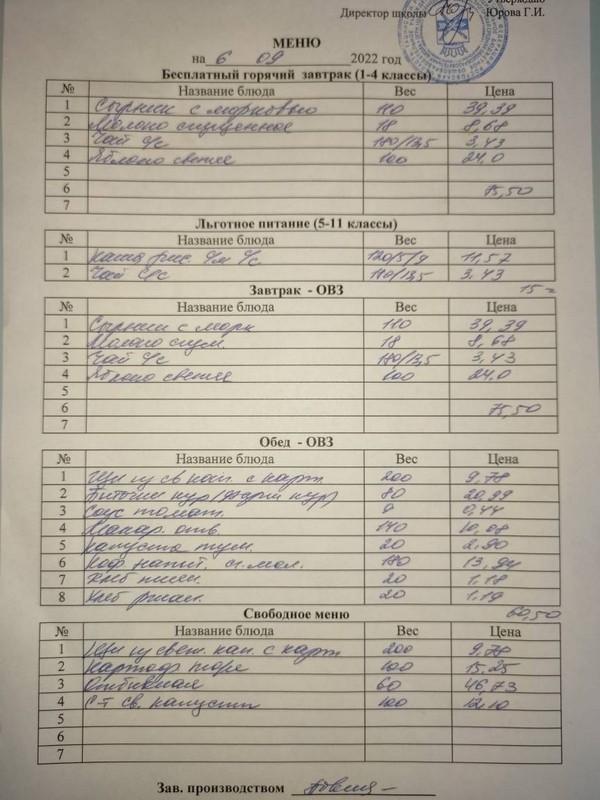 Утверждаю
Директор школы Юрова Г.И.
МЕНЮ
на 6 09 2022 год
Бесплатный горячий завтрак (1-4 классы)
№ Название блюда Вес Цена
1 Сырник с морковью 110 39,39
2 Молоко сгущенное 18 8,68
3 Чай с/с 180/13,5 3,43
4 Яблоко свежее 100 24,0
5
6 75,50
7
Льготное питание (5-11 классы)
№ Название блюда Вес Цена
1 Каша рис. с/м с/с 120/5/9 11,57
2 Чай с/с 180/13,5 3,43
15=
Завтрак - ОВЗ
№ Название блюда Вес Цена
1 Сырник с морк 110 39,39
2 Молоко сгущ. 18 8,68
3 Чай с/с 180/13,5 3,43
4 Яблоко свежее 100 24,0
5
6 75,50
7
Обед - ОВЗ
№ Название блюда Вес Цена
1 Щи из св кап. с карт 200 9,78
2 Биточки кур 80 20,99
3 Соус томат. 9 0,44
4 Макар. отв. 140 10,08
5 Капуста туш. 20 2,90
6 Коф. напит. сг. мол. 180 13,94
7 Хлеб пшен. 20 1,18
8 Хлеб ржан. 20 1,19
60,50
Свободное меню
№ Название блюда Вес Цена
1 Щи из свеж. кап. с карт 200 9,78
2 Картоф пюре 100 15,25
3 Отбивная 60 46,73
4 С-т св. капусты 100 12,10
5
6
7
Зав. производством